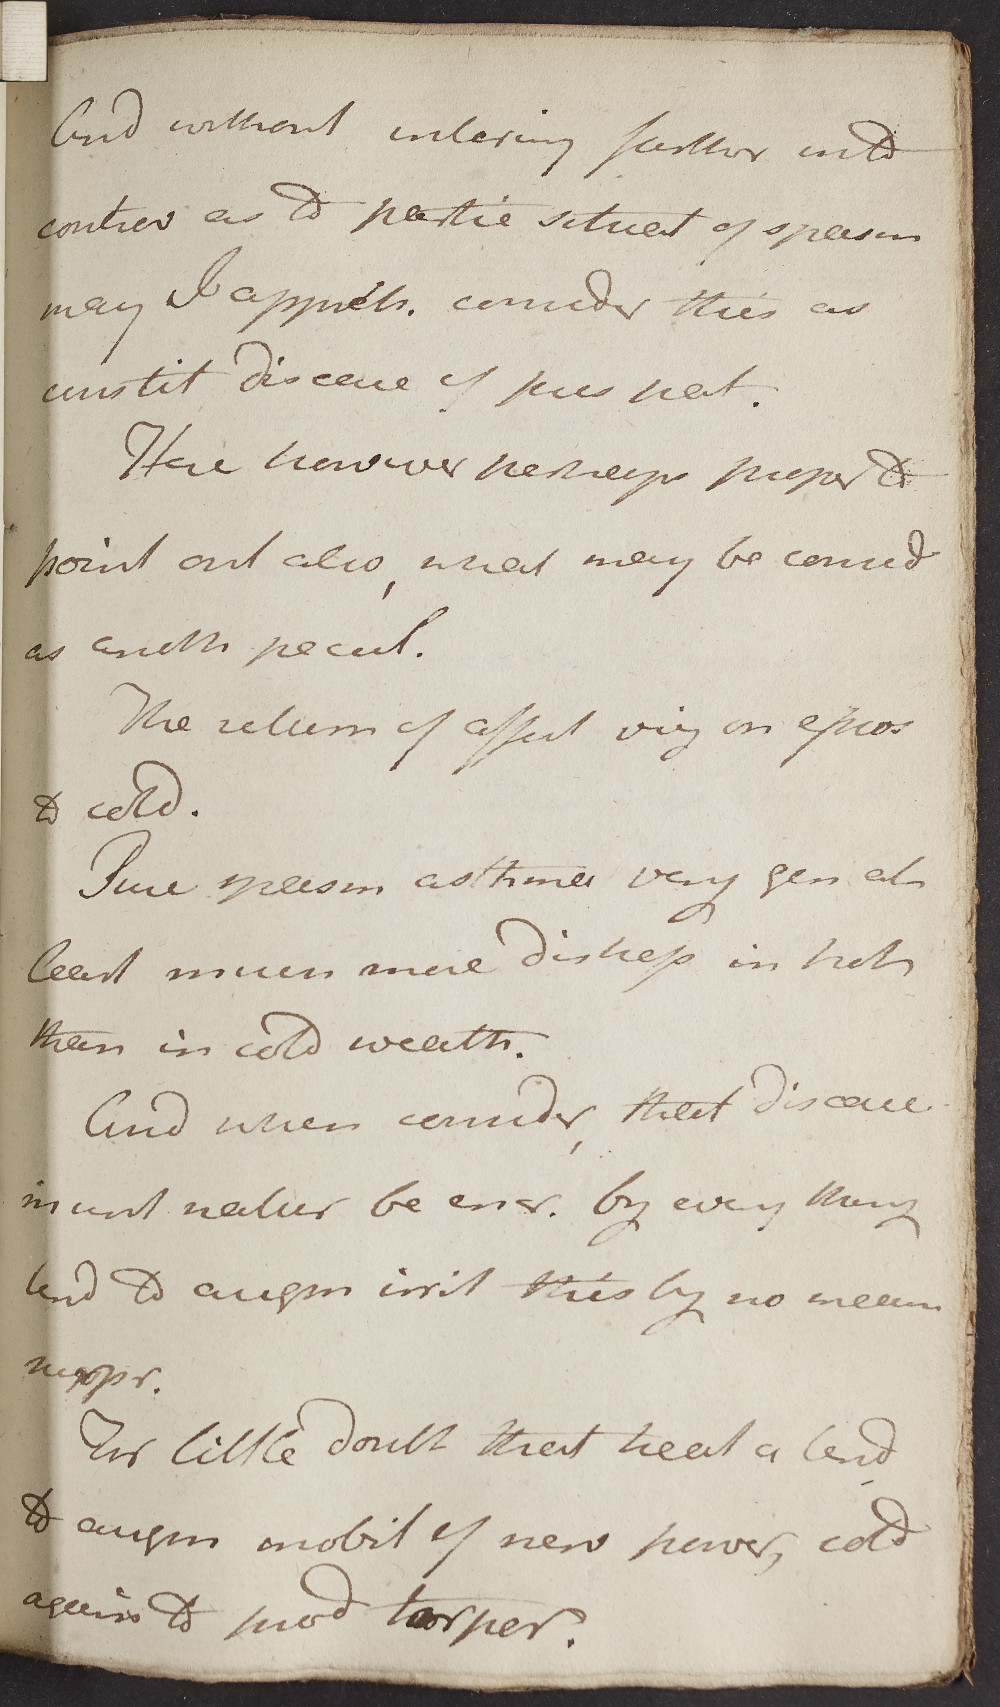 And without entering further into
controv as to partic situat of spasm
may I appreh. consider this as
constit disease of pres pat.
Here however perhaps proper to
point out also, what may be consid
as anoth pecul.
The return of affect viz on expos
to cold.
Pure spasm asthma very gen at
least much more distress in hot
than in cold weath.
And when consider, that disease
must natur be encr. by every thing
tend to augm irrit this by no mean
For little doubt that heat a tend
to augm mobil of nerv power, cold
again to prod torper.